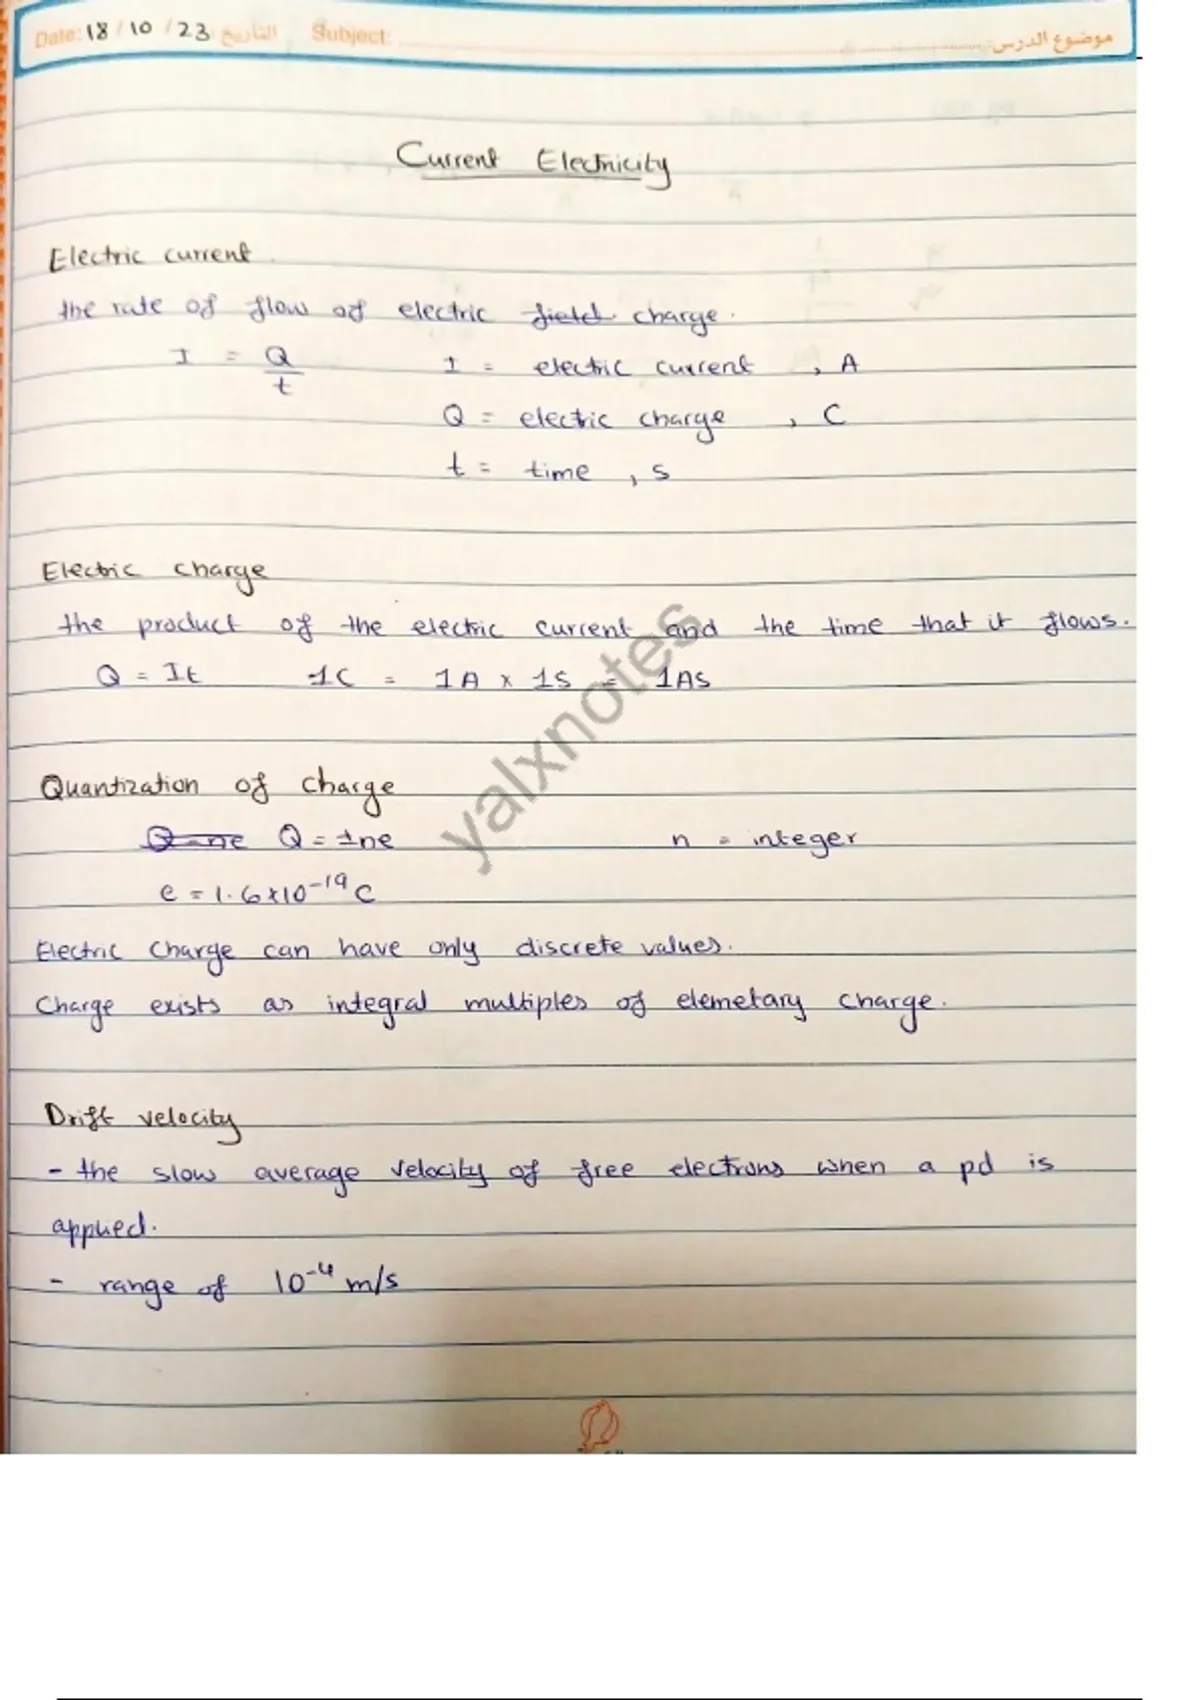 Date: 18 / 10 / 23 التاريخ Subject: موضوع الدرس:
Current Electricity
Electric current.
the rate of flow of electric field charge.
I = Q/t I = electric current, A
Q = electric charge, C
t = time, s
Electric charge
the product of the electric current and the time that it flows.
Q = It 1C = 1A × 1s = 1As
Quantization of charge
Q = ne Q = ±ne n = integer
e = 1.6×10⁻¹⁹ C
Electric Charge can have only discrete values.
Charge exists as integral multiples of elemetary charge.
Drift velocity
- the slow average velocity of free electrons when a pd is
applied.
- range of 10⁻⁴ m/s
yalxnotes